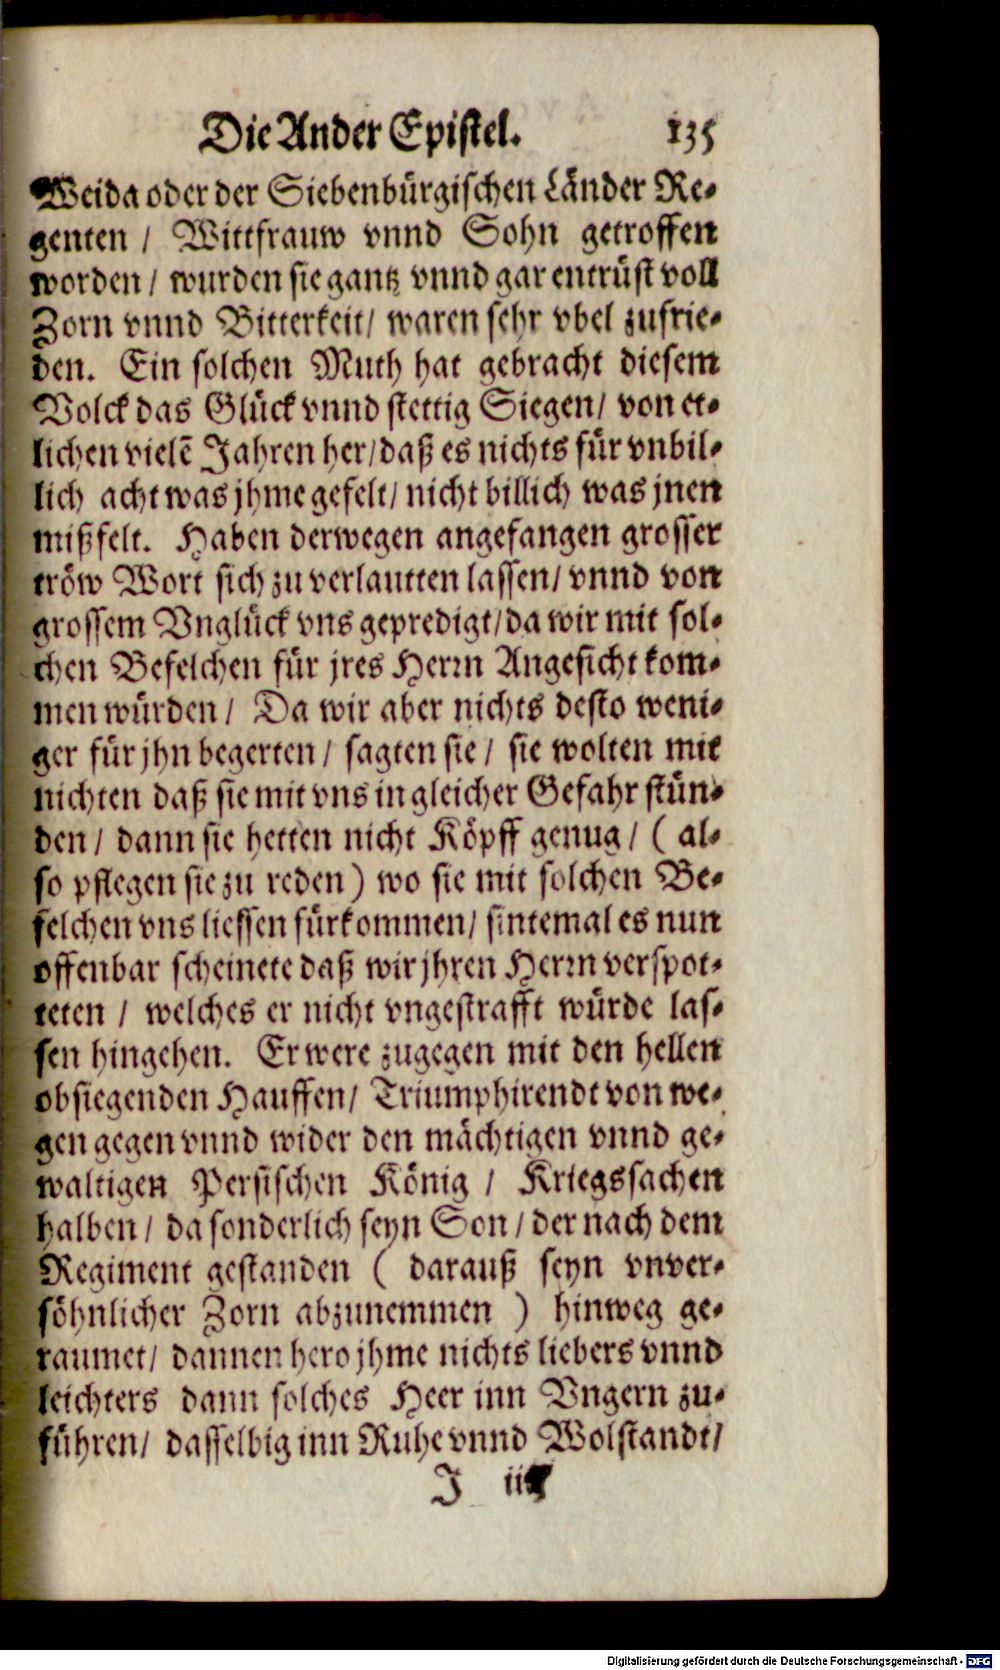 Die Ander Epistel. 135
Weida oder der Siebenbürgischen Länder Re-
genten / Wittfrauw vnnd Sohn getroffen
worden / wurden sie gantz vnnd gar entrüst voll
Zorn vnnd Bitterkeit / waren sehr vbel zufrie-
den. Ein solchen Muth hat gebracht diesem
Volck das Glück vnnd stettig Siegen / von et-
lichen vielē Jahren her / daß es nichts für vnbil-
lich acht was jhme gefelt / nicht billich was jnen
mißfelt. Haben derwegen angefangen grosser
tröw Wort sich zu verlautten lassen / vnnd von
grossem Vnglück vns gepredigt / da wir mit sol-
chen Befelchen für jres Herrn Angesicht kom-
men würden / Da wir aber nichts desto weni-
ger für jhn begerten / sagten sie / sie wolten mit
nichten daß sie mit vns in gleicher Gefahr stün-
den / dann sie hetten nicht Köpff genug / ( al-
so pflegen sie zu reden ) wo sie mit solchen Be-
felchen vns liessen fürkommen / sintemal es nun
offenbar scheinete daß wir jhren Herrn verspot-
teten / welches er nicht vngestrafft würde las-
sen hingehen. Er were zugegen mit den hellen
obsiegenden Hauffen / Triumphirendt von we-
gen gegen vnnd wider den mächtigen vnnd ge-
waltigen Persischen König / Kriegssachen
halben / da sonderlich seyn Son / der nach dem
Regiment gestanden ( darauß seyn vnver-
söhnlicher Zorn abzunemmen ) hinweg ge-
raumet / dannen hero jhme nichts liebers vnnd
leichters dann solches Heer inn Vngern zu-
führen / dasselbig inn Ruhe vnnd Wolstandt /
J
Digitalisierung gefördert durch die Deutsche Forschungsgemeinschaft - DFG